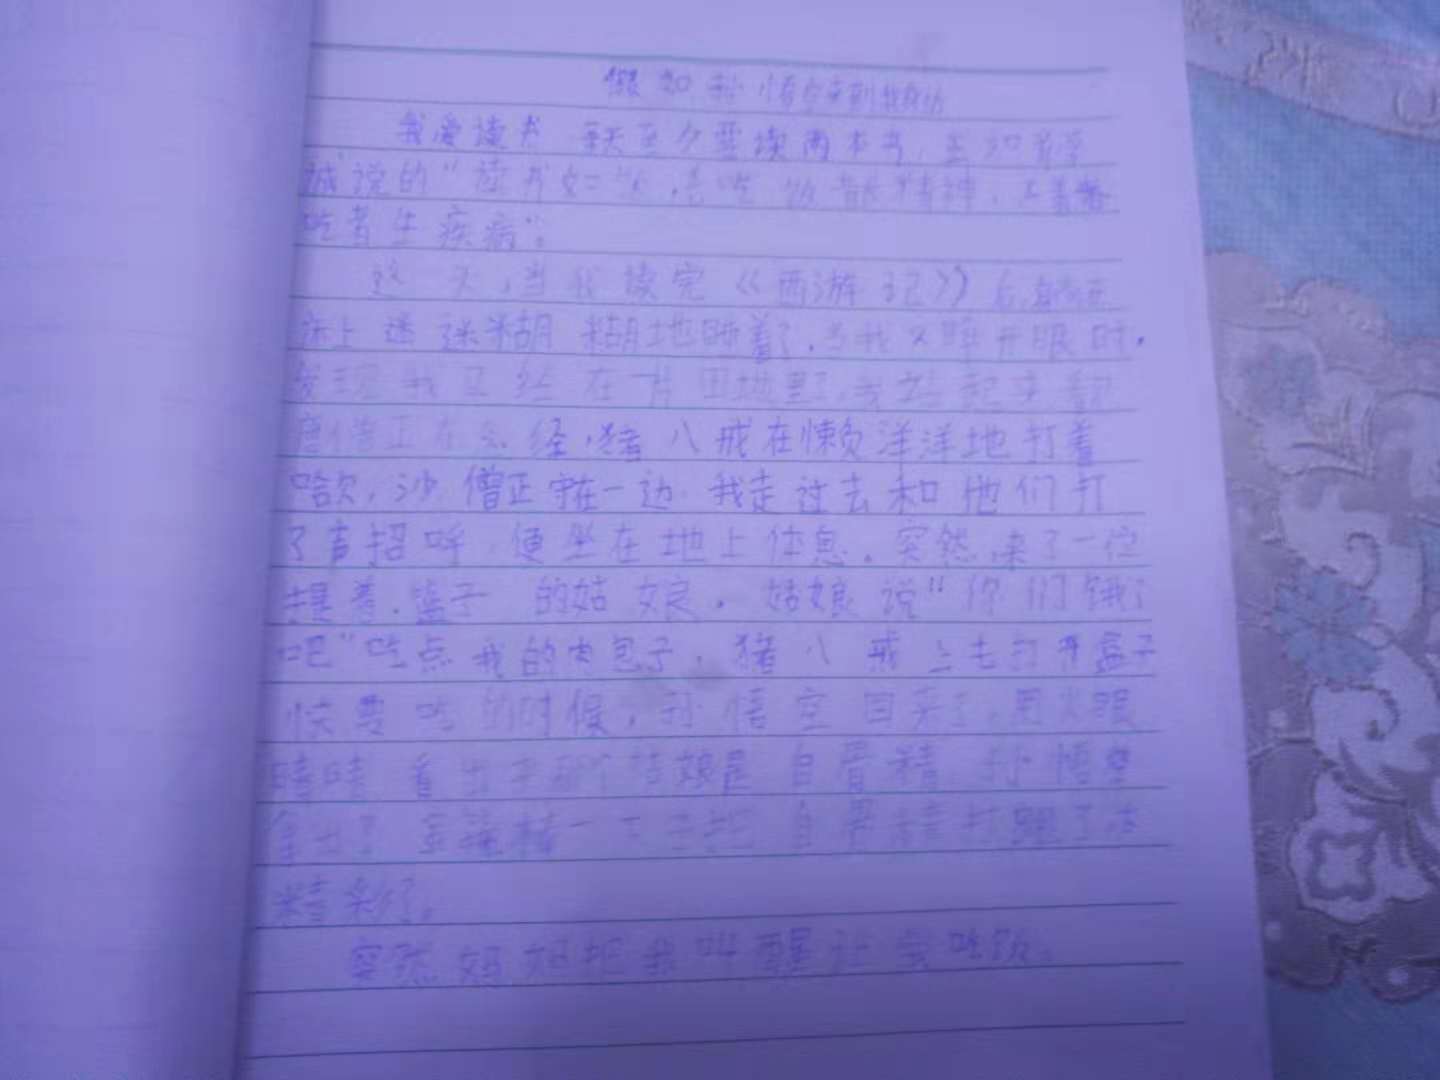 假如孙悟空来到我身边
我爱读书 每天至少要读两本书,
诚说的“读书如吃饭,善吃饭者长精神,不善
吃者生疾病”。
这一天,当我读完《西游记》后,
床上迷迷糊糊地睡着了.当我又睁开眼时.
发现我居然在一片田地里,我站起来看
唐僧正在念经,猪八戒在懒洋洋地打着
哈欠,沙僧正守在一边.我走过去和他们打
了声招呼,便坐在地上休息。突然,来了一位
提着.篮子 的姑娘。姑娘说“你们饿了
吧”吃点我的肉包子,猪八戒上去打开盒子
快要吃的时候,孙悟空回来了,用火眼
睛睛看出来那个姑娘是白骨精 孙悟空
拿出了金箍棒一下子把白骨精打跑了
精彩了。
突然妈妈把我叫醒让我吃饭。